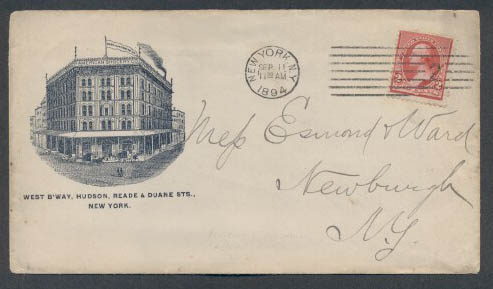 WEST B'WAY, HUDSON, READE & DUANE STS.,
NEW YORK.
NEW YORK, N.Y.
SEP 11
11 30 AM
1894
Mess Esmond & Ward
Newburgh
N.Y.